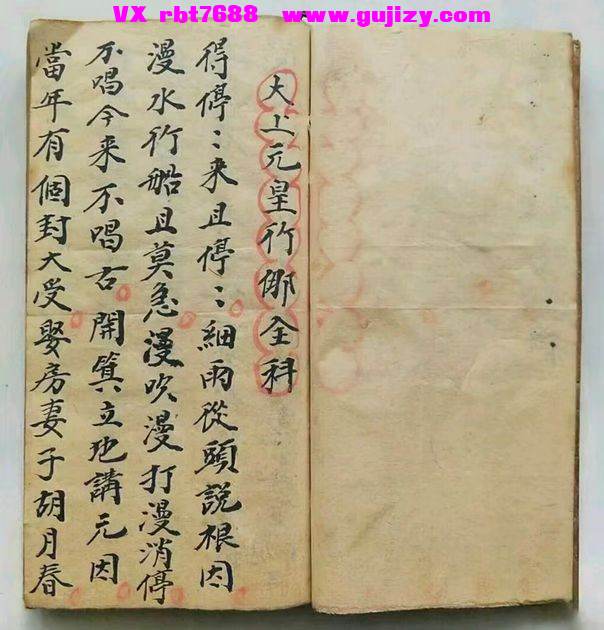 VX rbt7688 www.gujizy.com
大上元皇行傩全科
得停〻来且停〻細雨從頭說根因
漫水行船且莫急漫吹漫打漫消停
不唱今来不唱古開箕立地講元因
當年有個封大受娶房妻子胡月春